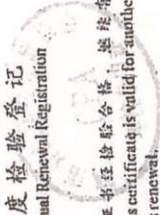 度检验登记
ual Renewal Registration
证书经检验合格，继续有
s certificate is valid for another
renewal.